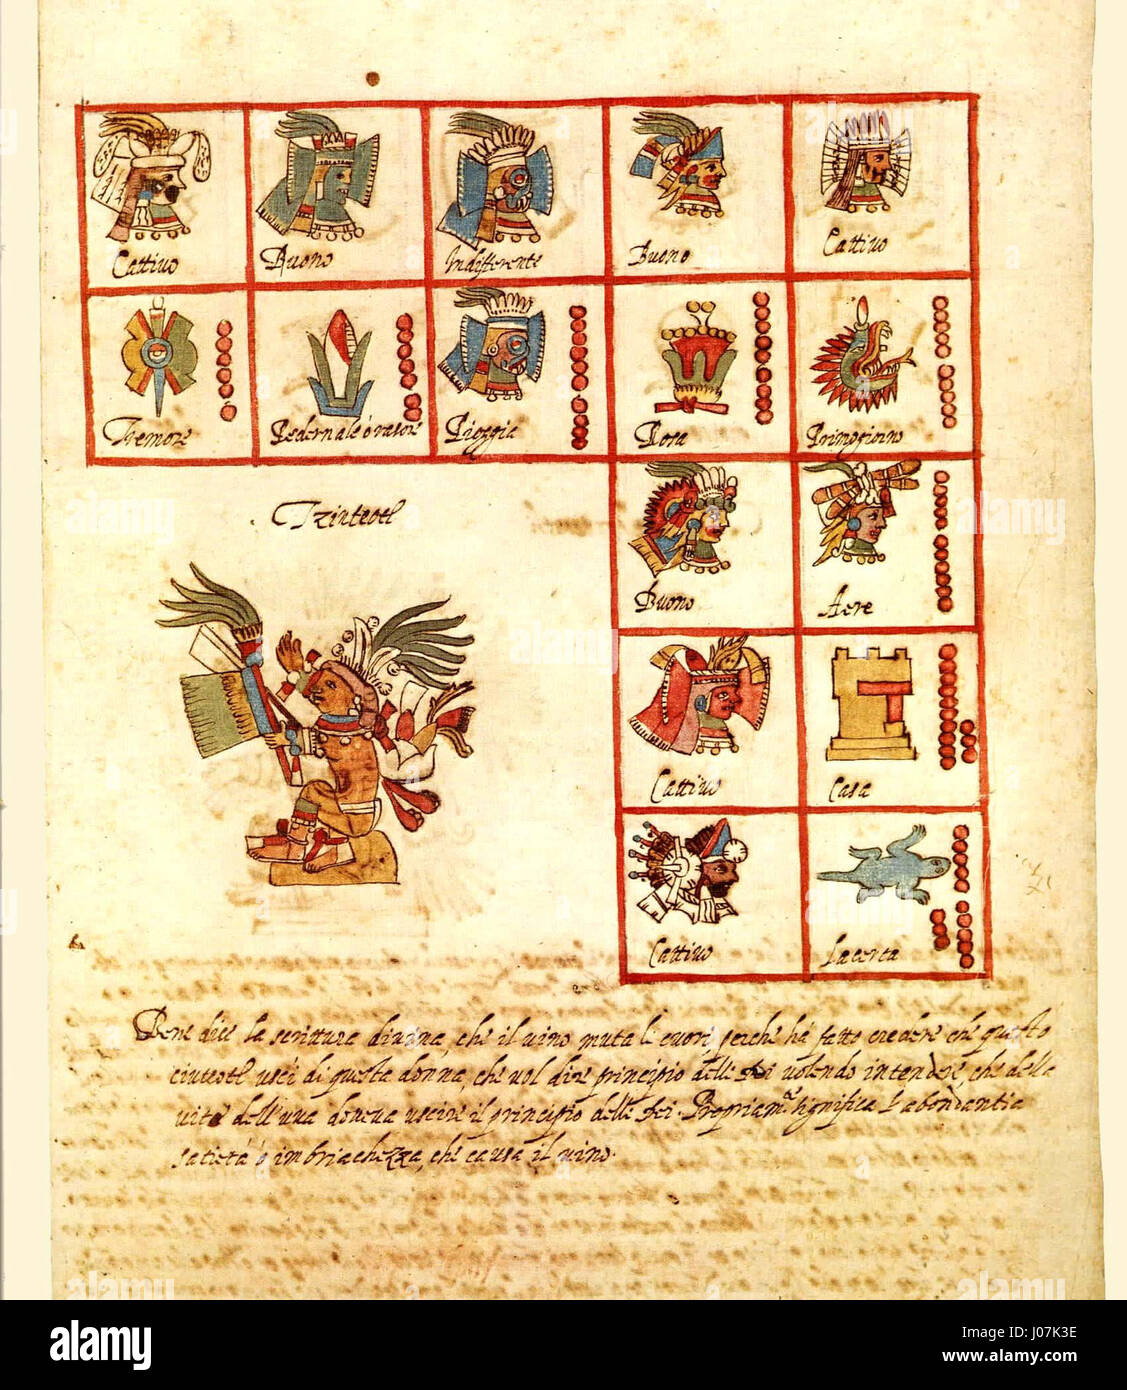 Cattiuo Buono Indifferente Buono Cattiuo
Tremore Pedernale ó rasore Pioggia Rosa Primogiorno
Tzinteotl
Buono Aere
Cattiuo Casa
Cattiuo Lacerta
Bene dice la scrittura diuina, che il uino muta li cuori, perche há fatto credere che questo
ciuteotl uscí di questa donna, che uol dire principio delli Dei uolendo intendere, che della
uite dell'uua doueua uscire il principio delli Dei. Propriamte significa l'abondantia
satietá ó imbriachezza, che causa il uino.
alamy
Image ID: J07K3E
www.alamy.com